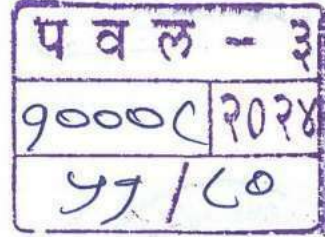 प व ल - ३
१०००८ २०२४
५१ / ८०